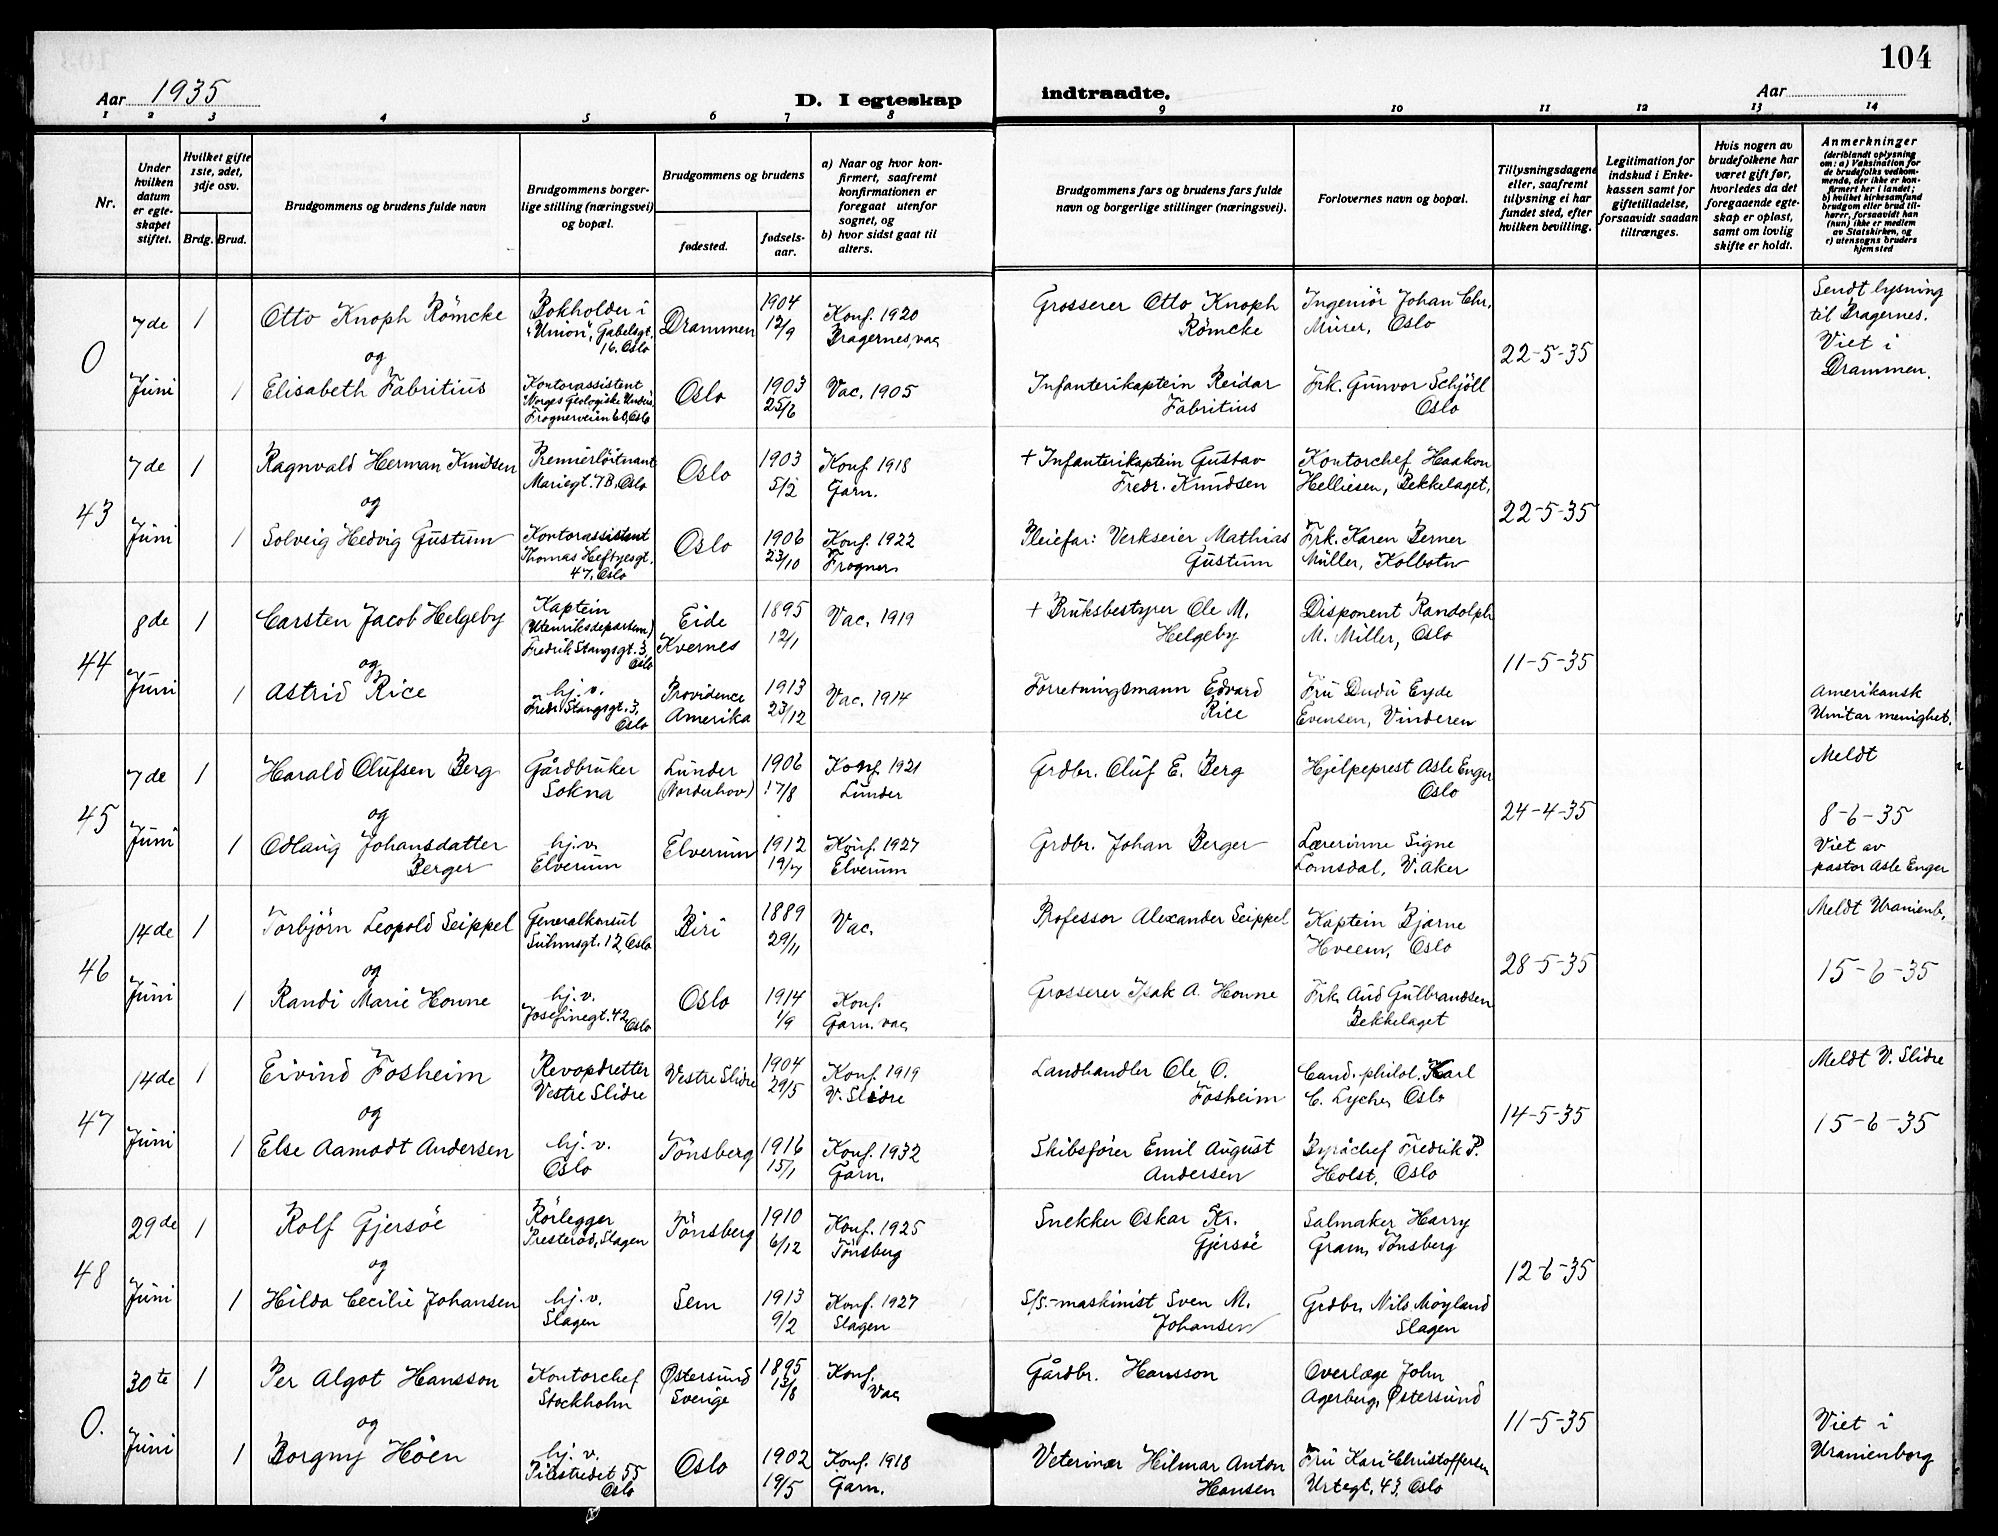 104
Aar 1935
D. I egteskap indtraadte.
Aar
1 2 3 4 5 6 7 8 9 10 11 12 13 14
Nr.
Under
hvilken
datum
er egte-
skapet
stiftet.
Hvilket gifte
1ste, 2det,
3dje osv.
Brdg. Brud.
Brudgommens og brudens fulde navn
Brudgommens borger-
lige stilling (næringsvei)
og bopæl.
Brudgommens og brudens
fødested.
fødsels-
aar.
a) Naar og hvor kon-
firmert, saafremt
konfirmationen er
foregaat utenfor
sognet, og
b) hvor sidst gaat til
alters.
Brudgommens fars og brudens fars fulde
navn og borgerlige stillinger (næringsvei).
Forlovernes navn og bopæl.
Tillysningsdagene
eller, saafremt
tillysning ei har
fundet sted, efter
hvilken bevilling.
Legitimation for
indskud i Enke-
kassen samt for
giftetilladelse,
forsaavidt saadan
tiltrænges.
Hvis nogen av
brudefolkene har
været gift før,
hvorledes da det
foregaaende egte-
skap er opløst,
samt om lovlig
skifte er holdt.
Anmerkninger
(deriblandt oplysning
om: a) Vaksination for
de brudefolks vedkom-
mende, der ikke er kon-
firmert her i landet;
b) hvilket kirkesamfund
brudgom eller brud til-
hører, forsaavidt han
(hun) ikke er medlem
av Statskirken, og
c) utensogns bruders
hjemsted
0
7de
Juni
1
Otto Knoph Römcke
og
Bokholder i
"Union", Gabelsgt.
16, Oslo
Drammen
1904
12/9
Konf. 1920
Bragernes, vac
Grosserer Otto Knoph
Römcke
Ingeniör Johan Chr.
Mürer, Oslo
22-5-35
Sendt lysning
til Bragernes.
Viet i
Drammen.
1
Elisabeth Fabritius
Kontorassistent
Norges Geologiske Unders.
Frognerveien 60, Oslo
Oslo
1903
25/6
Vac. 1905
Infanterikaptein Reidar
Fabritius
Frk. Gunvor Schjöll
Oslo
43
7de
Juni
1
Ragnvald Herman Knudsen
og
Premierlöitnant
Mariegt. 7B, Oslo
Oslo
1903
5/2
Konf 1918
Garn.
+ Infanterikaptein Gustav
Fredr. Knudsen
Kontorchef Haakon
Helliesen, Bekkelaget,
22-5-35
1
Solveig Hedvig Gustum
Kontorassistent
Thomas Heftyesgt.
47, Oslo
Oslo
1906
23/10
Konf. 1922
Frogner
Pleiefar: Verkseier Mathias
Gustum
Frk. Karen Berner
Müller, Kolbotn
44
8de
Juni
1
Carsten Jacob Helgeby
og
Kaptein
(Utenriksdepartem)
Fredrik Stangsgt. 3,
Oslo
Eide
Kvernes
1895
12/1
Vac. 1919
+ Bruksbestyrer Ole M.
Helgeby
Disponent Randolph
M. Miller, Oslo
11-5-35
1
Astrid Rice
hj. v.
Fredr. Stangsgt. 3,
Oslo
Providence
Amerika
1913
23/12
Vac. 1914
Forretningsmann Edvard
Rice
Fru Dudu Eyde
Evensen, Vinderen
Amerikansk
Unitar menighet.
45
7de
Juni
1
Harald Olufsen Berg
og
Gårdbruker
Sokna
Lunder
(Norderhov)
1906
17/8
Konf 1921
Lunder
Grdbr. Oluf E. Berg
Hjelpeprest Asle Enger
Oslo
24-4-35
Meldt
8-6-35
Viet av
pastor Asle Enger
1
Odlaug Johansdatter
Berger
hj. v.
Elverum
Elverum
1912
19/7
Konf. 1927
Elverum
Grdbr. Johan Berger
Lærerinne Signe
Lomsdal, V. Aker
46
14de
Juni
1
Torbjörn Leopold Seippel
og
Generalkonsul
Suhmsgt. 12, Oslo
Biri
1889
29/11
Vac.
Professor Alexander Seippel
Kaptein Bjarne
Hveem, Oslo
28-5-35
Meldt Uranienb.
15-6-35
1
Randi Marie Honne
hj. v.
Josefinegt. 42, Oslo
Oslo
1914
1/9
Konf.
Garn. vac
Grosserer Isak A. Honne
Frk. Aud Gulbrandsen
Bekkelaget
47
14de
Juni
1
Eivind Fosheim
og
Revopdretter
Vestre Slidre
Vestre Slidre
1904
29/5
Konf. 1919
V. Slidre
Landhandler Ole O.
Fosheim
Cand. philol. Karl
C. Lyche, Oslo
14-5-35
Meldt V. Slidre
15-6-35
1
Else Aamodt Andersen
hj. v.
Oslo
Tönsberg
1916
15/1
Konf. 1932
Garn.
Skibsförer Emil August
Andersen
Byråchef Fredrik P.
Holst, Oslo
48
29de
Juni
1
Rolf Gjersöe
og
Rörlegger
Presteröd, Slagen
Tönsberg
1910
6/12
Konf. 1925
Tönsberg
Snekker Oskar Kr.
Gjersöe
Salmaker Harry
Gram, Tönsberg
12-6-35
1
Hilda Cecilie Johansen
hj. v.
Slagen
Sem
1913
9/2
Konf. 1927
Slagen
S/S.-maskinist Sven M.
Johansen
Grdbr. Nils Möyland
Slagen
0.
30te
Juni
1
Per Algot Hansson
og
Kontorchef
Stockholm
Östersund
Sverige
1895
13/8
Konf.
Vac
Gårdbr. Hansson
Overlæge John
Agerberg, Östersund
11-5-35
Viet i
Uranienborg
1
Borgny Höen
hj. v.
Pilestredet 55
Oslo
Oslo
1902
19/5
Konf. 1918
Garn.
Veterinær Hilmar Anton
Hansen
Fru Kari Christoffersen
Urtegt. 43, Oslo